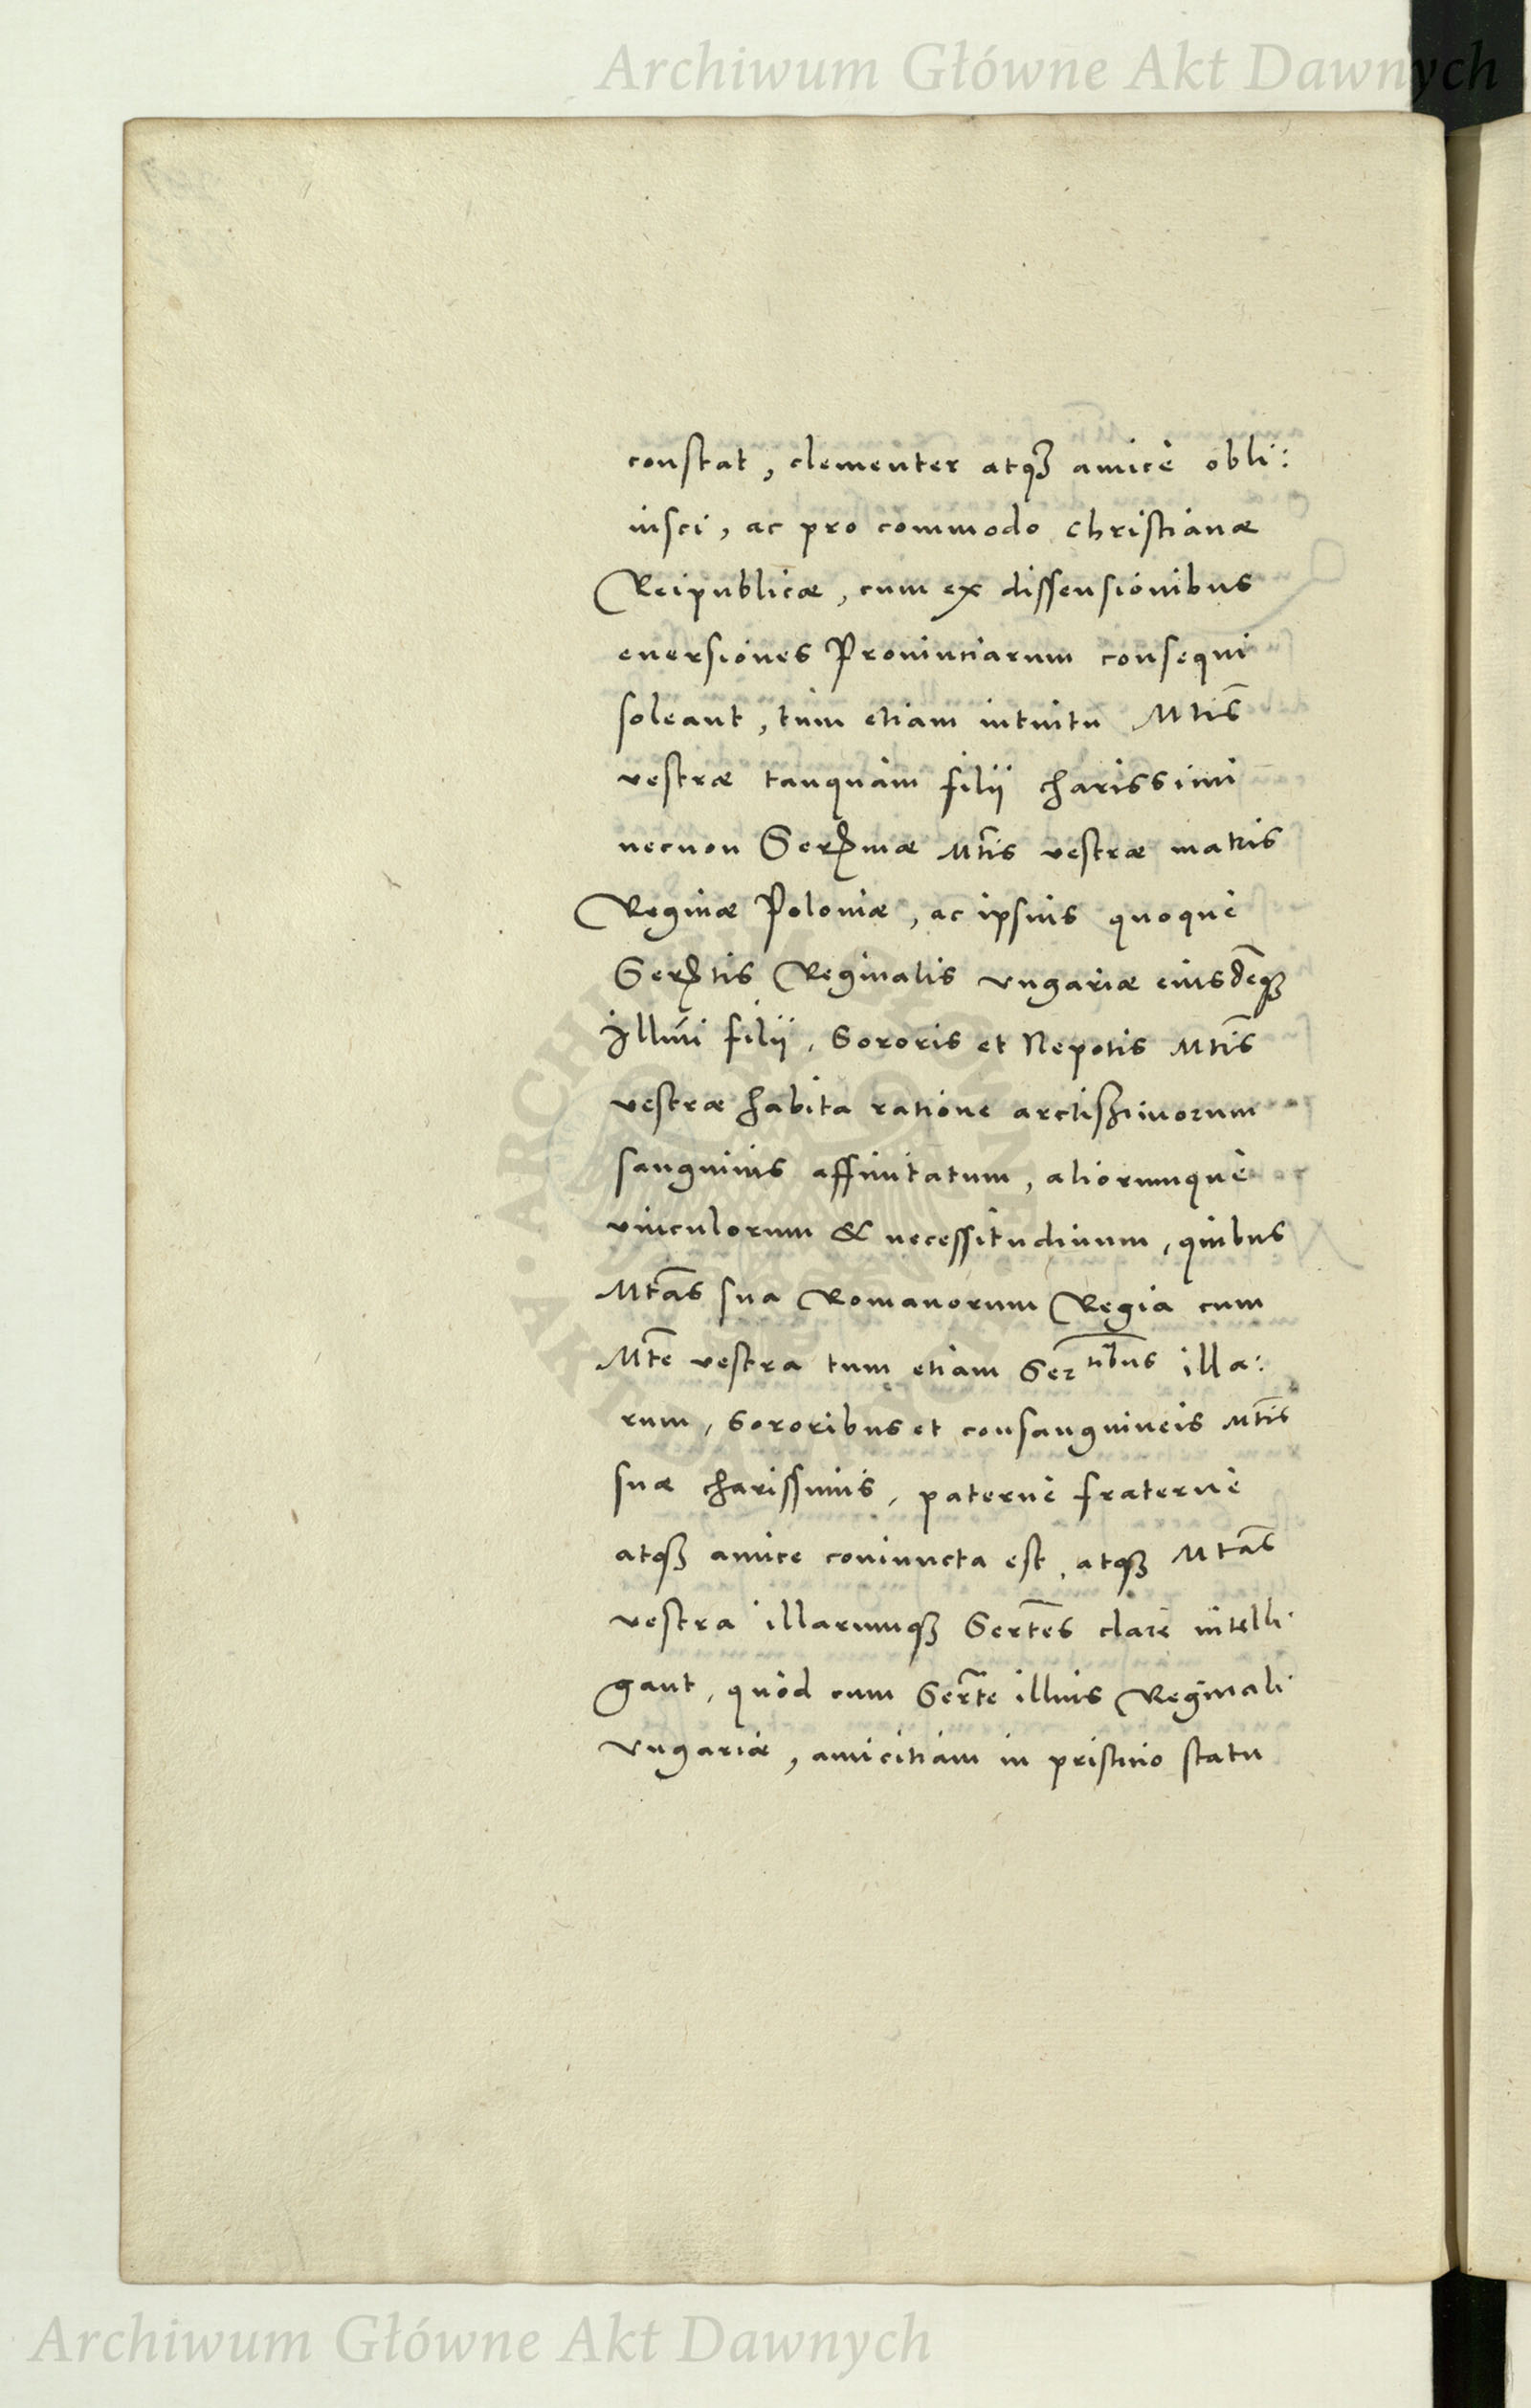 Archiwum Główne Akt Dawnych
constat, clementer atqꝫ amicè obli:
uisci, ac pro commodo christianæ
Reipublicæ, cum ex dissensionibus
euersiones Prouinciarum consequi
soleant, tum etiam intuitu Mtis̄
vestræ tanquàm filii charissimi
necnon Serꝫmæ Mtis̄ vestræ matris
Reginæ Poloniæ, ac ipsius quoquè
Serꝫtis Reginalis vngariæ eiusdēqꝫ
Illmi filii, Sororis et Nepotis Mtis̄
vestræ habita ratione arctissimorum
sanguinis affinitatum, aliorumquè
vinculorum & necessitudinum, quibus
Mtās sua Romanorum Regia cum
Mtē vestra tum etiam Sertibus illa:
rum, Sororibus et consanguineis Mtis̄
suæ charissimis, paternè fraternè
atqꝫ amice coniuncta est, atqꝫ Mtās
vestra illarumqꝫ Sertēs clarè intelli
gant, quòd cum Sertē illius Reginali
vngariæ, amicitiam in pristino statu
ARCHIWUM GŁÓWNE AKT DAWNYCH
Archiwum Główne Akt Dawnych